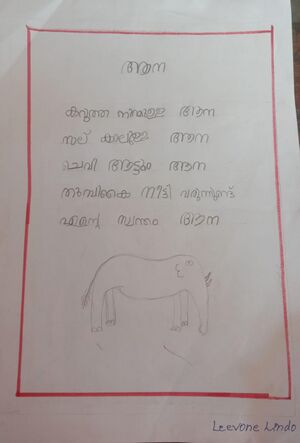 ആന
കറുത്ത നിറമുള്ള ആന
നാല് കാലുള്ള ആന
ചെവി ആട്ടും ആന
തുമ്പികൈ നീട്ടി വരുന്നുണ്ട്
എന്റെ സ്വന്തം ആന
Leevone Lindo